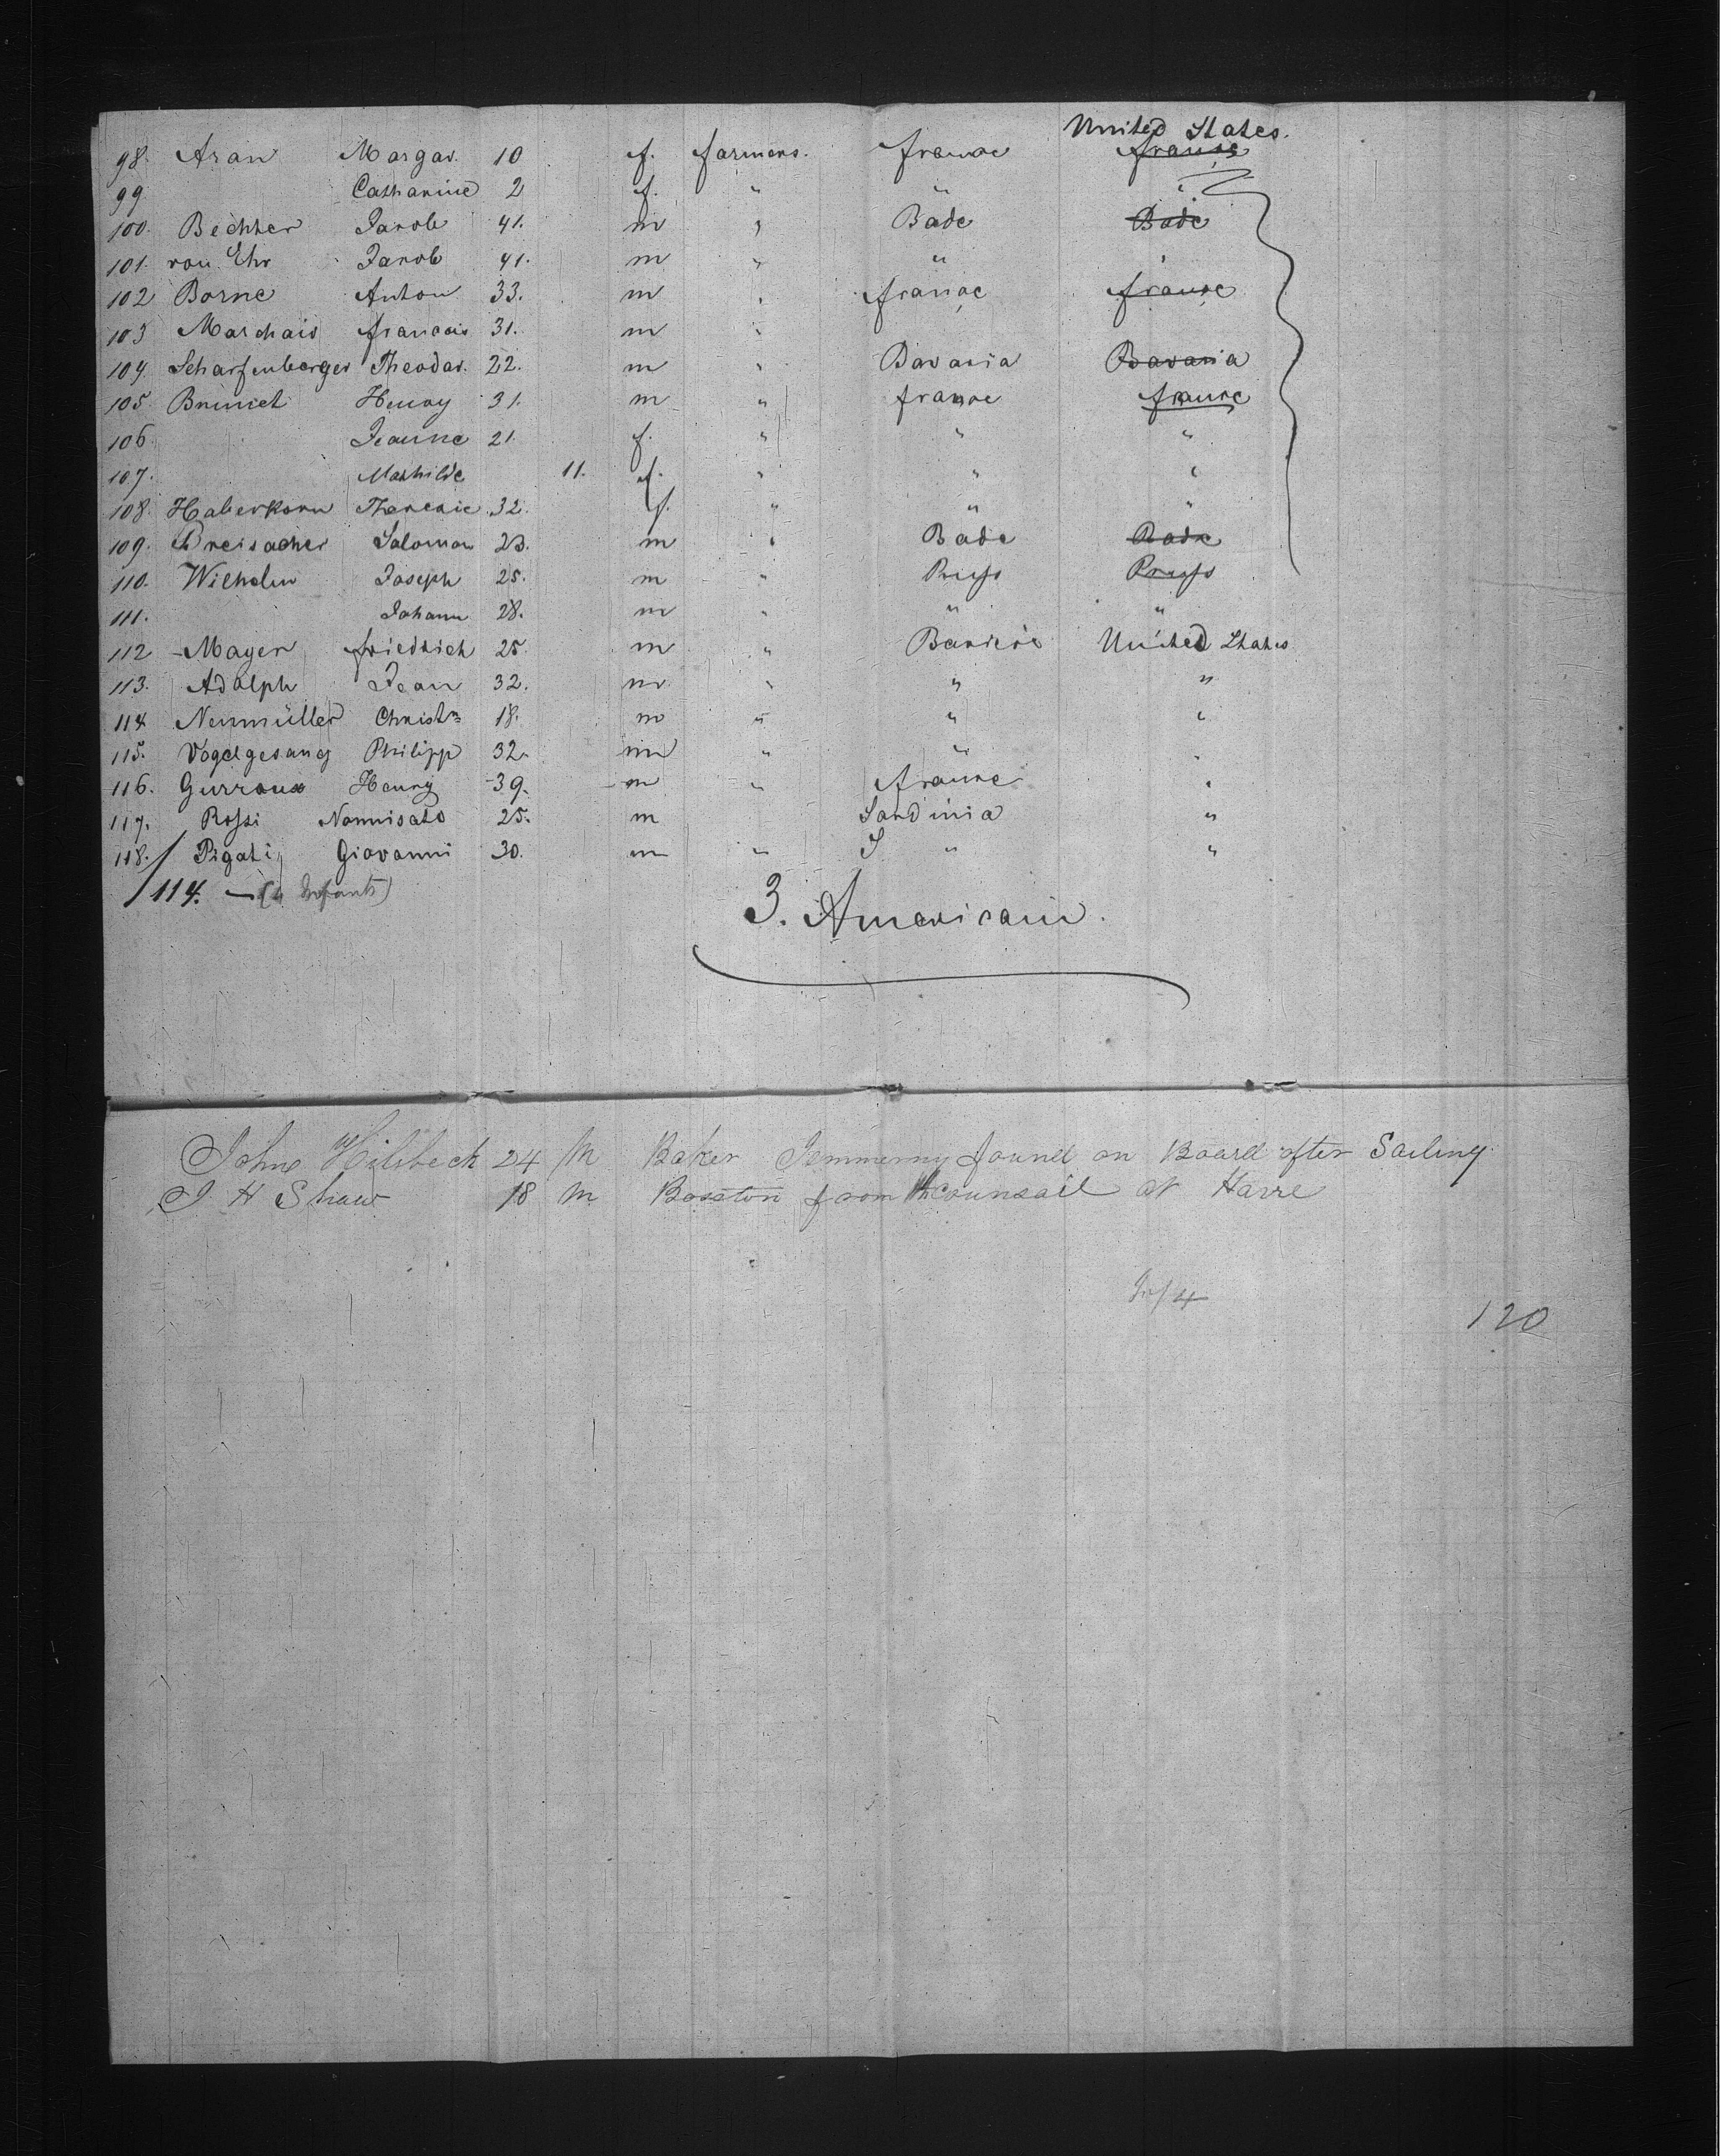 United States.
98. Aran Margar. 10 f. farmers. france france
99 Catharine 2 f. " " "
100. Bechher Jacob 41. m " Bade Bade
101. von Ehr Jacob 41. m " " "
102 Borne Anton 33. m " france france
103 Marchais francois 31. m "
104. Scharfenberger Theodor. 22. m " Bavaria Bavaria
105. Brunet Henry 31. m " france france
106. Jeanne 21. f. " " "
107. Mathilde 11. f. " " "
108. Haberkorn Theresie 32. f. " " "
109. Dreisacher Saloman 23. m " Bade Bade
110. Wilhelm Joseph 25. m " Pruss Pruss
111. Johann 28. m " " "
112 Mayer friedrich 25. m " Baviere United States
113. Adolph Jean 32. m " " "
114 Neumüller Christn 18. m " " "
115. Vogelgesang Philipp 32. m " " "
116. Gurraux Henry 39. m " france "
117. Rossi 25. m Sardinia "
118. Pigati Giovanni 30. m " S " "
114. — (4 Infants)
3. Americain.
John Hilsbeck 24 M Baker Jemmerny found on Board after Sailing
J H Shaw 18 M Boston from counsail at Havre
Inf 4
120